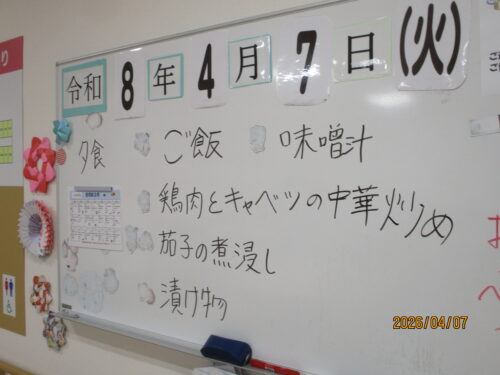 令和 8 年 4 月 7 日 (火)
夕食 ご飯 味噌汁
鶏肉とキャベツの中華炒め
茄子の煮浸し
漬け物
2026/04/07